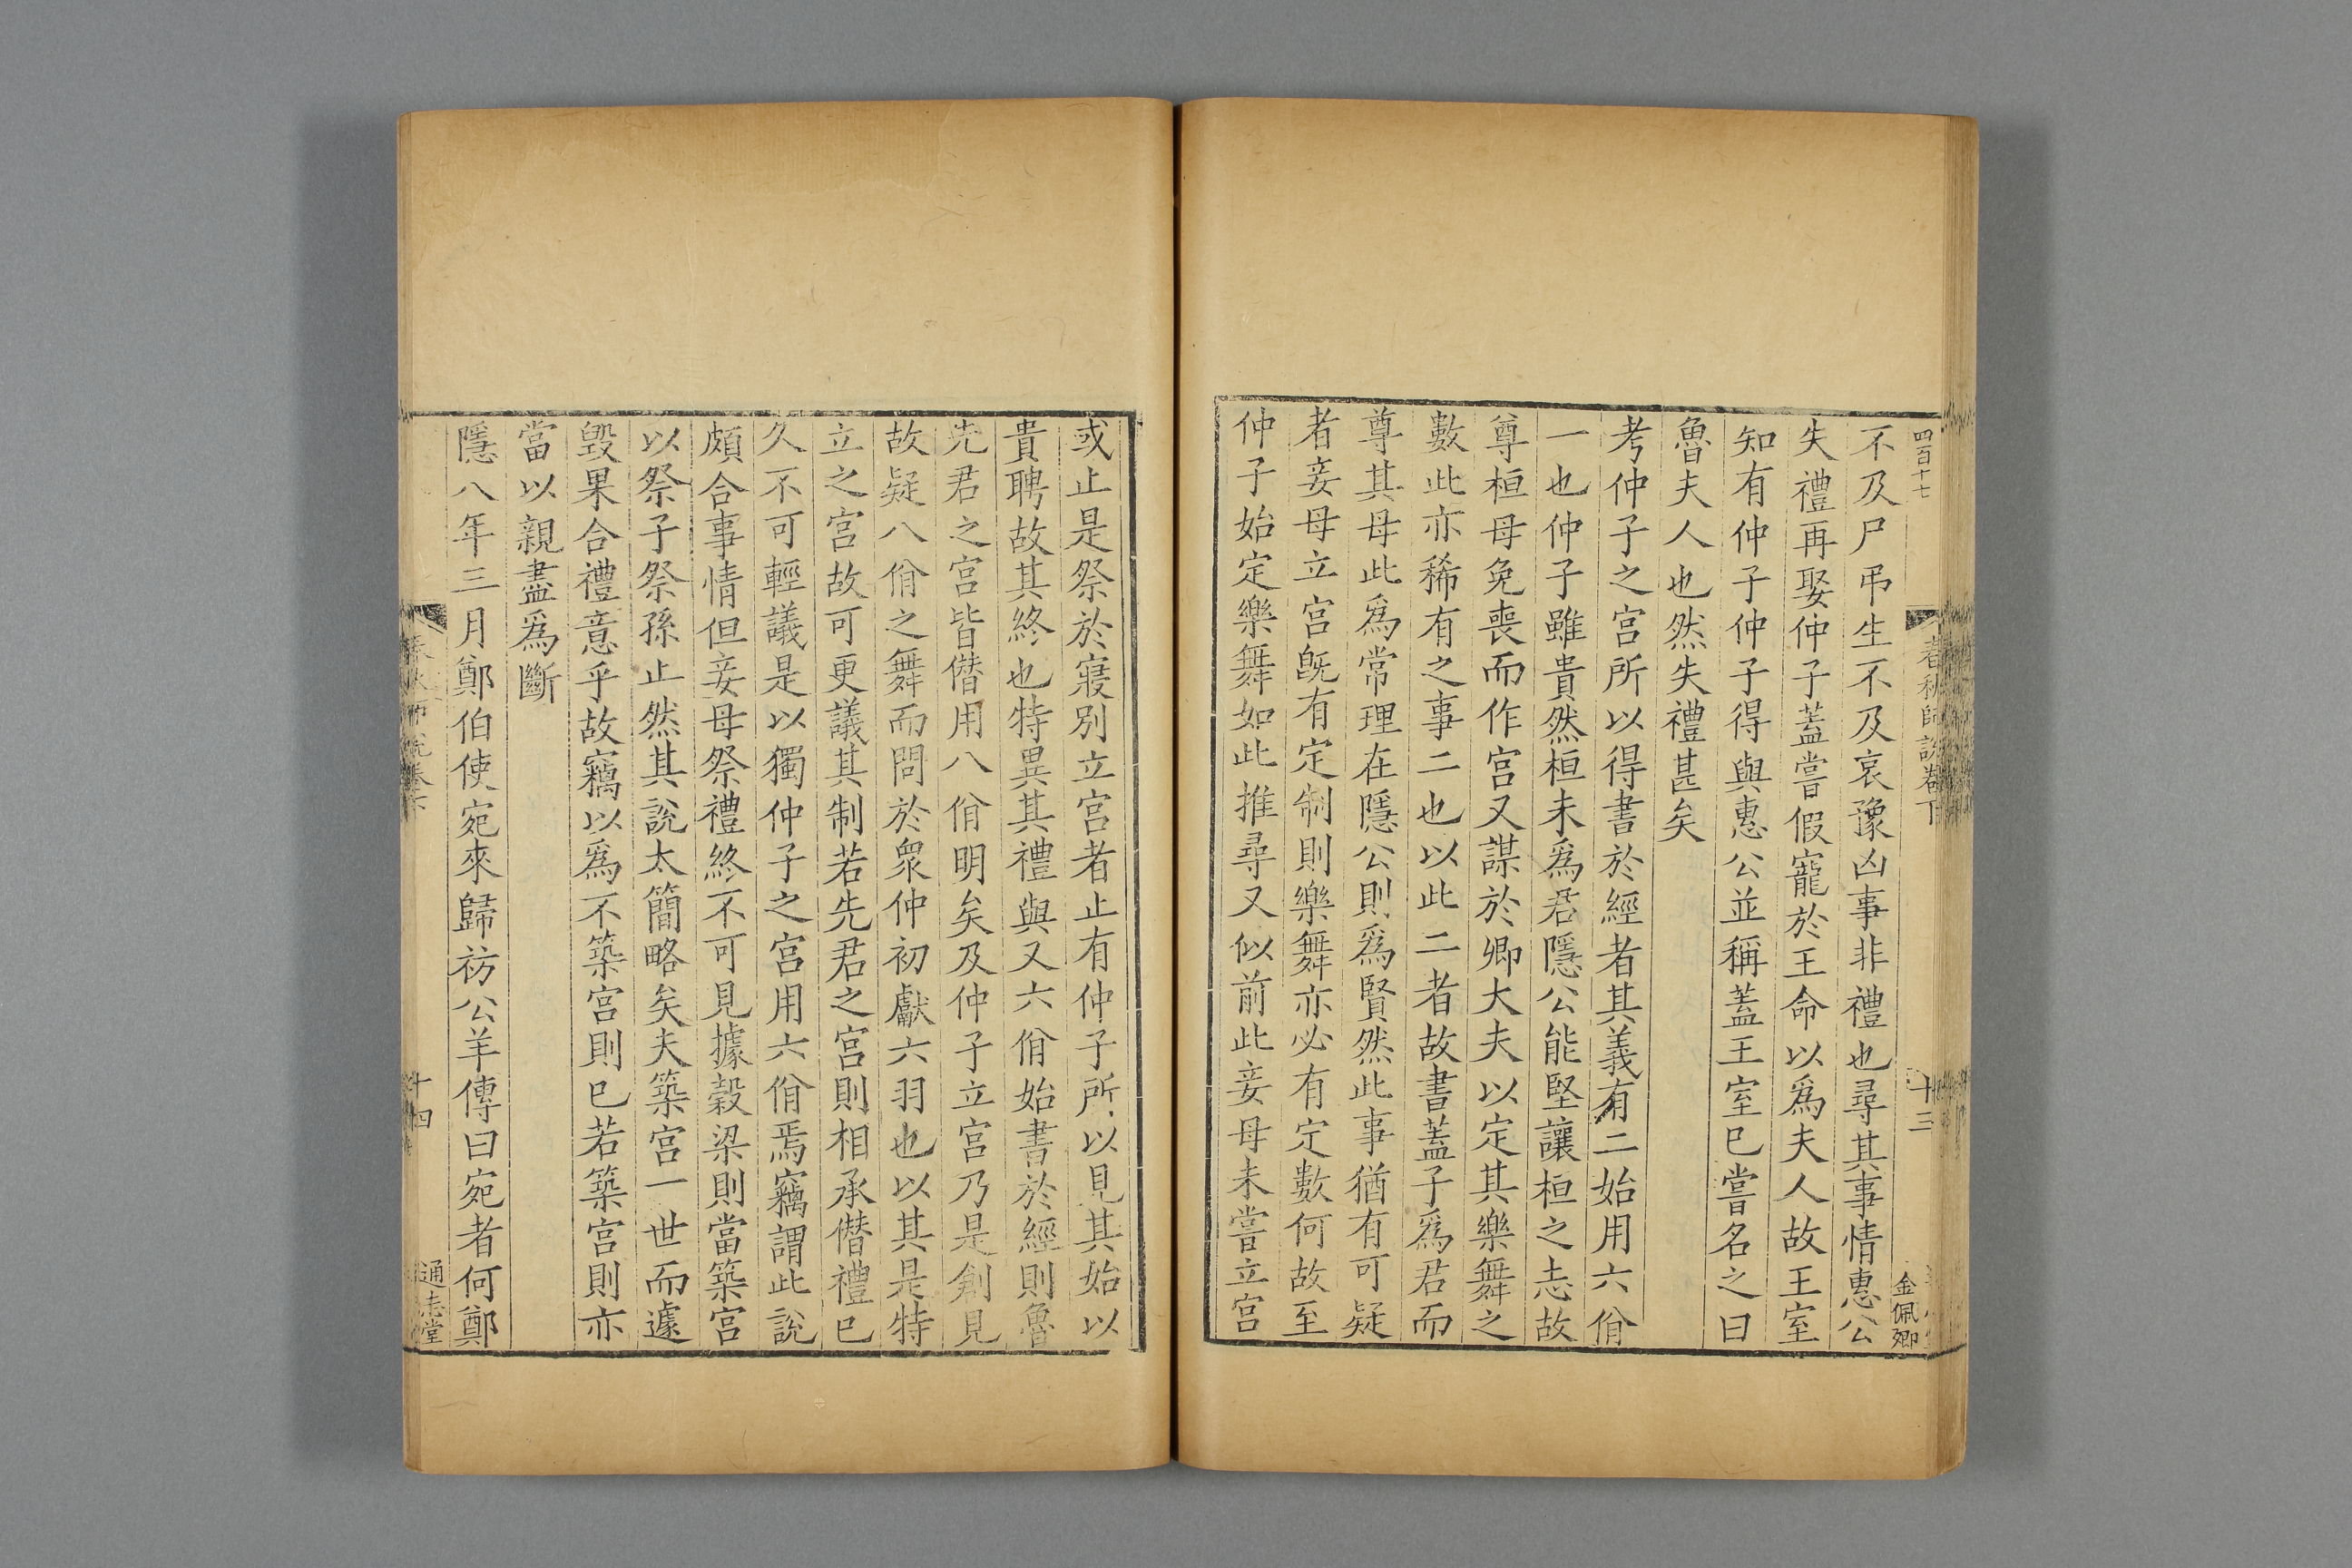 四百十七
春秋師說卷下
十三
金佩卿
不及尸弔生不及哀豫凶事非禮也尋其事情惠公
失禮再娶仲子蓋嘗假寵於王命以爲夫人故王室
知有仲子仲子得與惠公並稱蓋王室已嘗名之曰
魯夫人也然失禮甚矣
考仲子之宮所以得書於經者其義有二始用六佾
一也仲子雖貴然桓未爲君隱公能堅讓桓之志故
尊桓母免喪而作宮又謀於卿大夫以定其樂舞之
數此亦稀有之事二也以此二者故書蓋子爲君而
尊其母此爲常理在隱公則爲賢然此事猶有可疑
者妾母立宮旣有定制則樂舞亦必有定數何故至
仲子始定樂舞如此推尋又似前此妾母未嘗立宮
或止是祭於寢別立宮者止有仲子所以見其始以
貴聘故其終也特異其禮與又六佾始書於經則魯
先君之宮皆僭用八佾明矣及仲子立宮乃是創見
故疑八佾之舞而問於衆仲初獻六羽也以其是特
立之宮故可更議其制若先君之宮則相承僭禮已
久不可輕議是以獨仲子之宮用六佾焉竊謂此說
頗合事情但妾母祭禮終不可見據穀梁則當築宮
以祭子祭孫止然其說太簡略矣夫築宮一世而遽
毀果合禮意乎故竊以爲不築宮則已若築宮則亦
當以親盡爲斷
隱八年三月鄭伯使宛來歸祊公羊傳曰宛者何鄭
春秋師說卷下
十四
通志堂